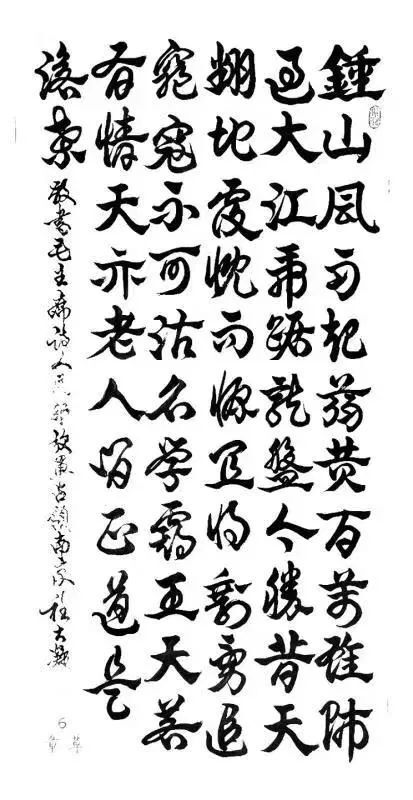 鍾山風雨起蒼黄百萬雄師
過大江虎踞龍盤今勝昔天
翻地覆慨而慷宜将剩勇追
窮寇不可沽名學霸王天若
有情天亦老人間正道是
滄桑
敬書毛主席詩人民解放軍占領南京
6
章草